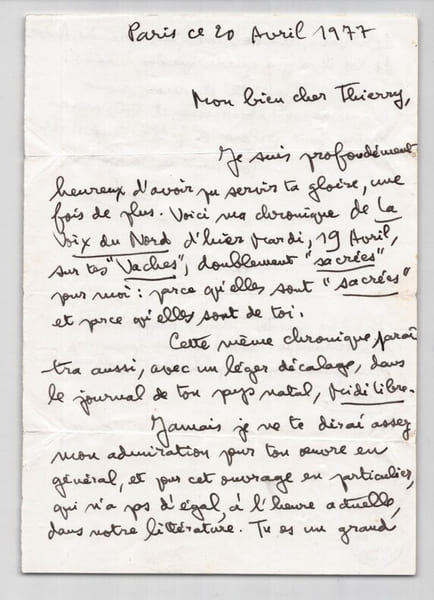 Paris ce 20 Avril 1977
Mon bien cher Thierry,
Je suis profondément
heureux d'avoir pu servir ta gloire, une
fois de plus. Voici ma chronique de La
Voix du Nord d'hier Mardi, 19 Avril,
sur tes "Vaches", doublement "sacrées"
pour moi : parce qu'elles sont "sacrées"
et parce qu'elles sont de toi.
Cette même chronique, paraî
-tra aussi, avec un léger décalage, dans
le journal de ton pays natal, Midi Libre.
Jamais je ne te dirai assez
mon admiration pour ton œuvre en
général, et pour cet ouvrage en particulier,
qui n'a pas d'égal, à l'heure actuelle,
dans notre littérature. Tu es un grand